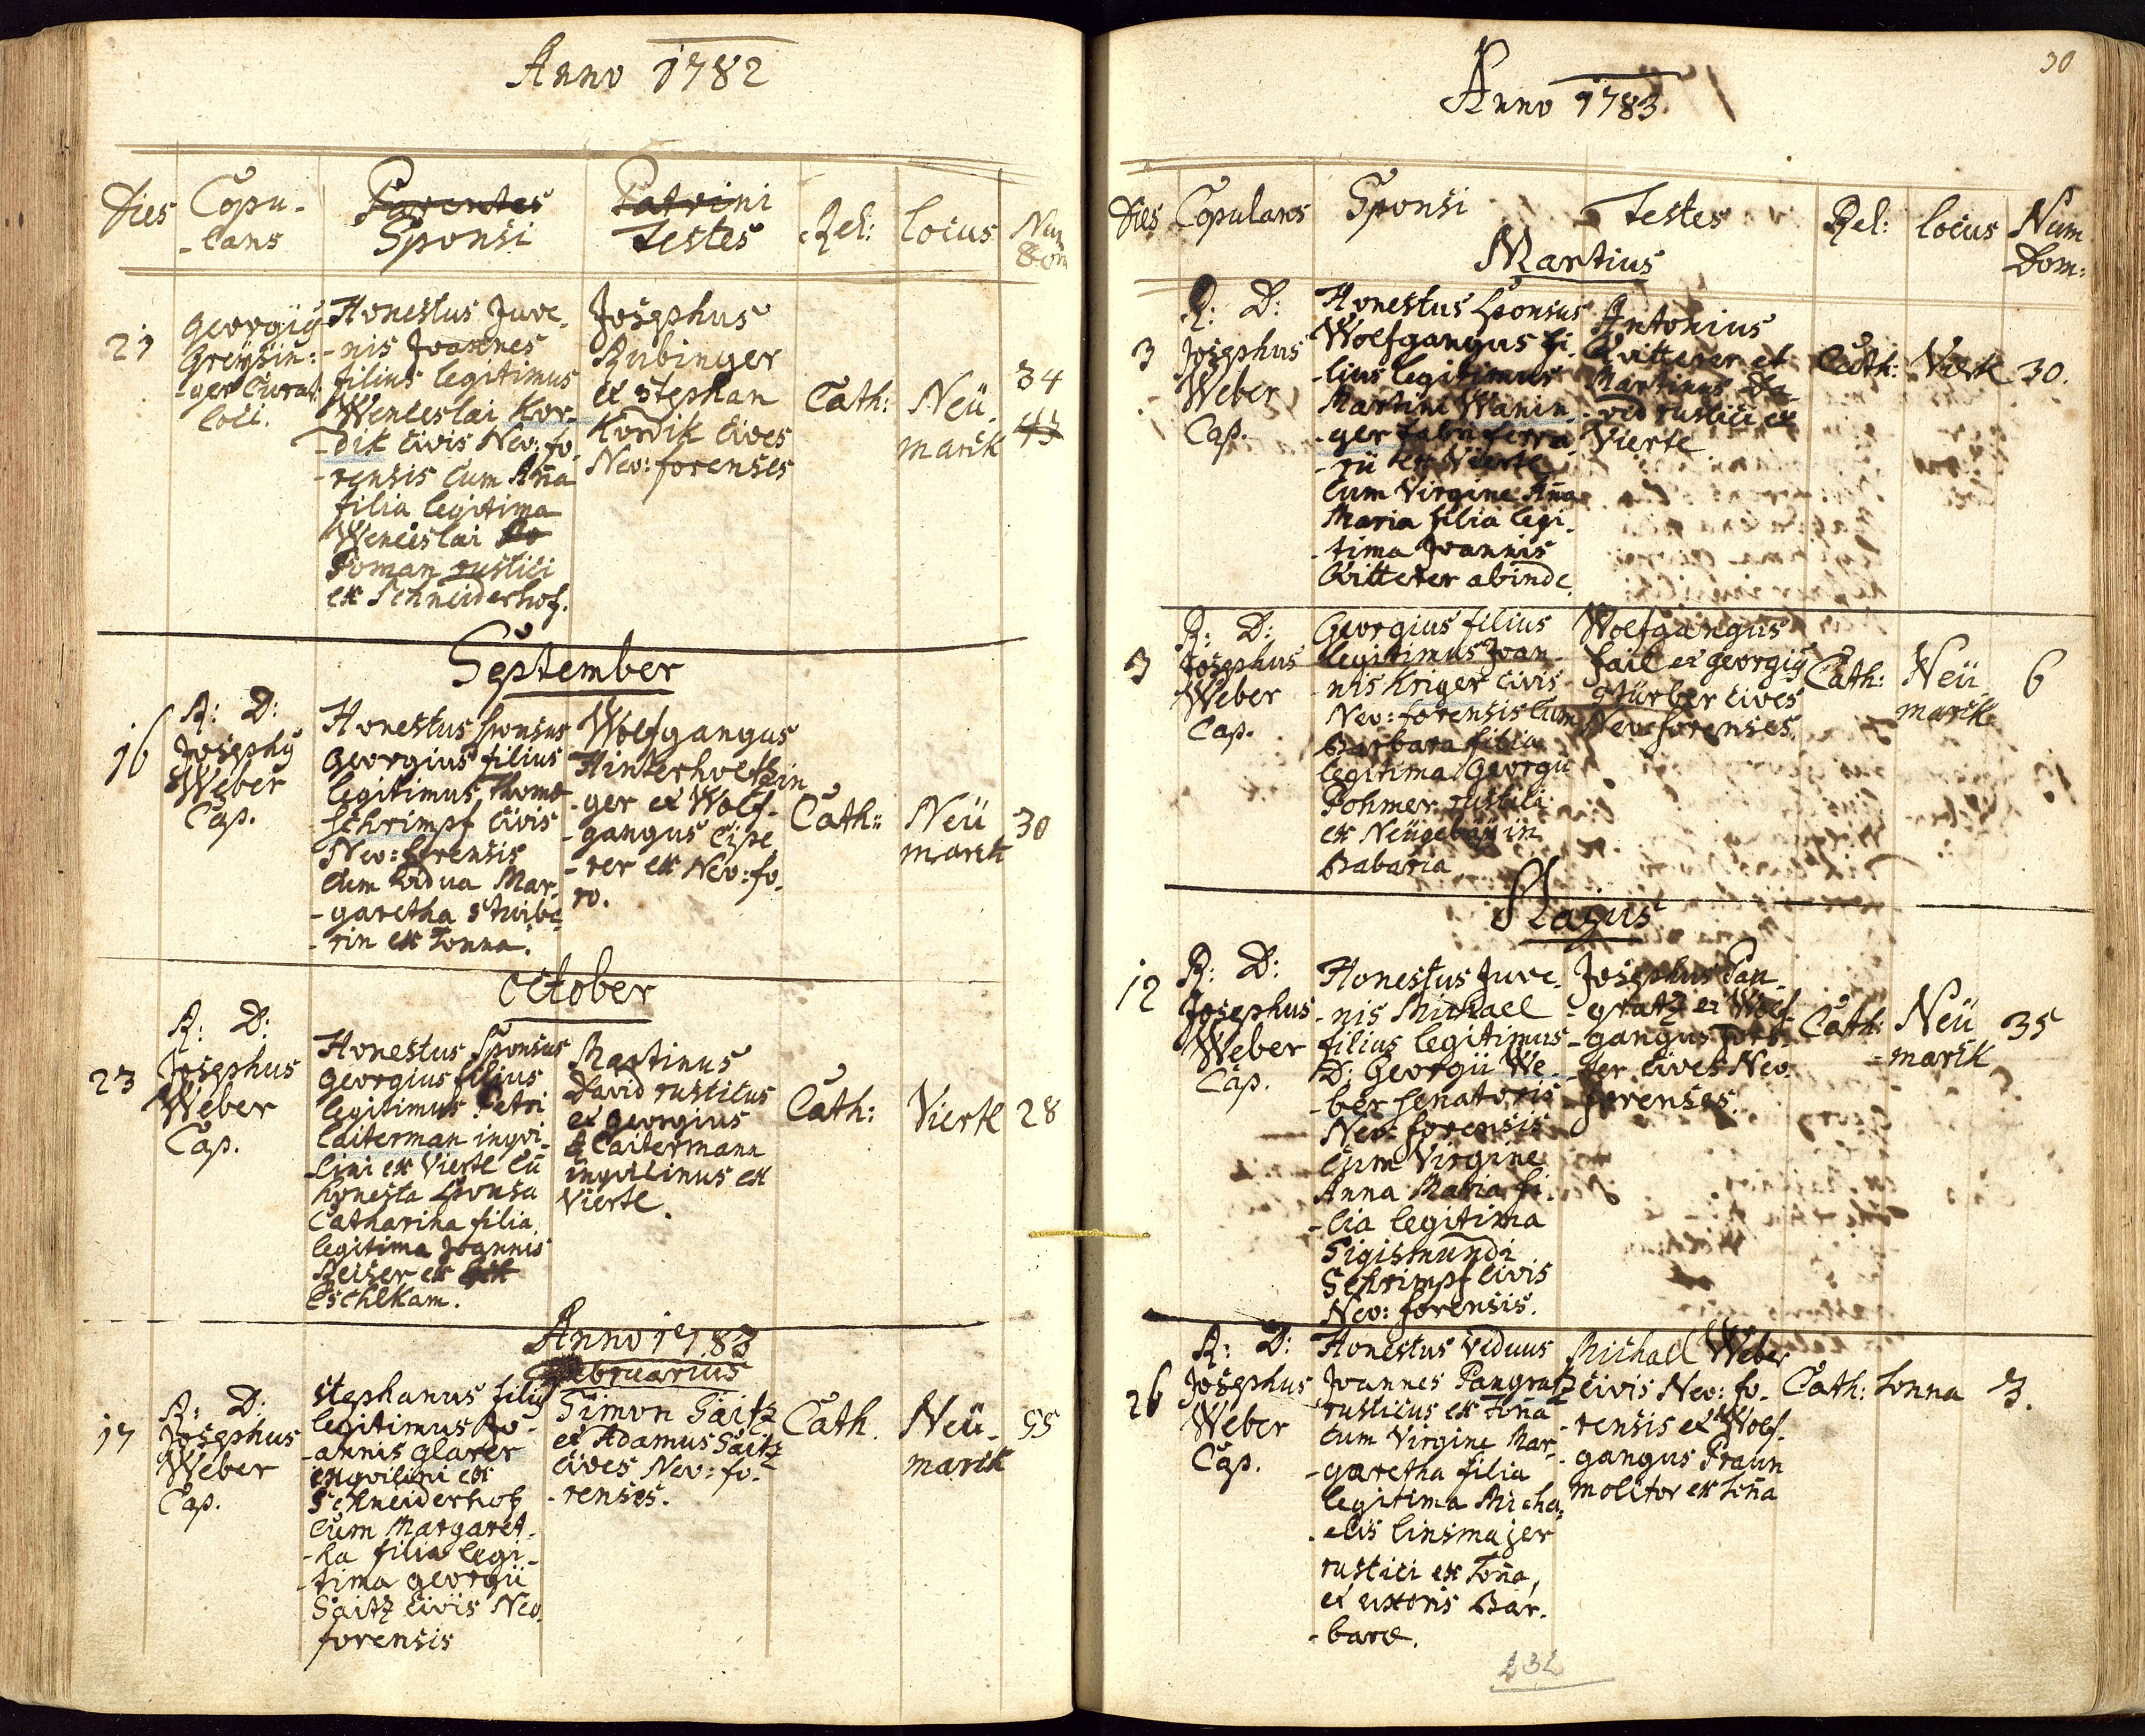 Anno 1782
Dies
Copu-
-lans
Parentes
Sponsi
Patrini
Testes
Rel:
locus
Num
Dom
21
Georgiÿ
Greÿsin:
-ger Curat:
loci.
Honestus Juve-
-nis Joannes
filius legitimus
Wenceslai Kor-
-dik Civis Neo: fo-
-rensis cum Aña
filia legitima
Wenceslai
Toman rustici
ex Schneiderhof.
Josephus
Rubinger
et Stephan
Kordik Cives
Neo: forenses
Cath:
Neü-
marck
34
43
September
16
R: D:
Josephÿ
Weber
Cap.
Honestus sponsus
Georgius filius
legitimus Thomæ
Schrimpf Civis
Neo: forensis
Cum vidua Mar-
-garetha Stuibe
-rin ex Tonna.
Wolfgangus
Hinterholtzin
-ger et Wolf-
-gangus
-rer ex Neo: fo-
ro.
Cath:
Neü
marck
30
October
23
R: D:
Josephus
Weber
Cap.
Honestus Sponsus
Georgius filius
legitimus Petri
Laiterman inqvi-
-lini ex Viertl Cũ
honesta Sponsa
Catharina filia
legitima Joannis
Reiser ex
Eschlkam.
Martinus
David rusticus
et Georgius
Laitermann
inqvilinus ex
Viertl.
Cath:
Viertl
28
Anno 1783
Februarius
17
R: D:
Josephus
Weber
Cap.
Stephanus filiÿ
legitimus Jo-
-annis Glaser
inqvilini ex
Schneiderhof
Cum Margaret-
-ha filia legi-
-tima Georgii
Saitz Civis Neo
forensis
Simon Saitz
et Adamus Saitz
Cives Neo: fo-
-renses.
Cath.
Neü-
marck
55
30
Anno 1783.
Dies
Copulans
Sponsi
Testes
Rel:
locus
Num
Dom:
Martius
3
R: D:
Josephus
Weber
Cap.
Honestus Sponsus
Wolfgangus fi-
-lius legitimus
Martini Wanin-
-ger fabri ferra-
-rii ex Viertl
Cum Virgine Aña
Maria filia legi-
-tima Joannis
Qvitterer abinde.
Antonius
Qvitterer et
Martinus Da-
-vid rustici ex
Vierte
Cath:
Viertl
30.
3
R: D:
Josephus
Weber
Cap.
Georgius filius
legitimus Joan-
-nis Kriger Civis
Neo: forensis Cum
Barbara filia
legitima Georgii
Pohmer rustici
ex Neügebäÿ in
Babaria
Wolfgangus
fail et Georgiÿ
Stürber Cives
Neo: forenses.
Cath:
Neü
marck
6
Majus
12
R: D:
Josephus
Weber
Cap.
Honestus Juve-
-nis Michael
filius legitimus
D: Georgii We-
-ber Senatoris
Neo: forensis
Cum Virgine
Anna Maria fi-
-lia legitima
Sigismundi
Schrimpf Civis
Neo: forensis.
Josephus Pan-
-gratz et Wolf-
-gangus
-ter Cives Neo
forenses.
Cath:
Neü
-marck
35
26
R: D:
Josephus
Weber
Cap.
Honestus Viduus
Joannes Pangratz
rusticus ex Toña
Cum Virgine Mar-
-garetha filia
legitima Micha-
-elis Linsmajer
rustici ex Toña,
et uxoris Bar-
-baræ.
Michael Weber
Civis Neo: fo-
-rensis et Wolf-
-gangus Praun
Molitor ex Toña
Cath:
Tonna
3.
232